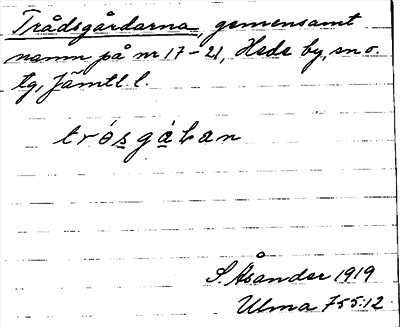 Trådsgårdarna, gemensamt
namn på nr 17-21, Hede by, sn o.
tg, Jämtl. l.
trósgàhan
S. Åsander 1919
Ulma 755:12.